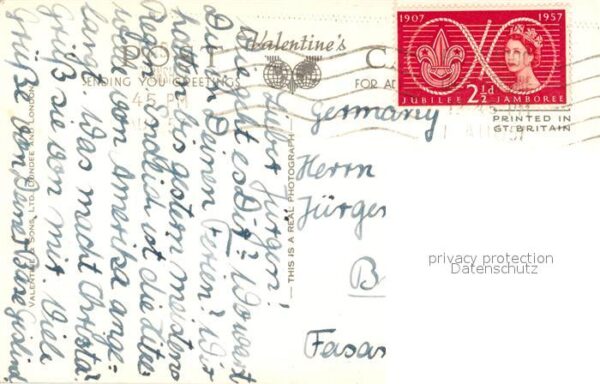 POST CARD
Valentine's
SENDING YOU GREETINGS
FOR AD
45 PM
1907 1957
2½d
JUBILEE JAMBOREE
PRINTED IN
GT. BRITAIN
Lieber Jürgen!
Wie geht es Dir? Wo warst
Du in Deinen Ferien? Wir
hatten bis gestern meistens
Regen. Endlich ist die
von Amerika ange-
langt. Was macht Christa?
Grüß sie von mir. Viele
Grüße von Deiner
VALENTINE & SONS, LTD., DUNDEE AND LONDON
— THIS IS A REAL PHOTOGRAPH —
Germany
Herrn
Jürgen
B
Fasa
privacy protection
Datenschutz